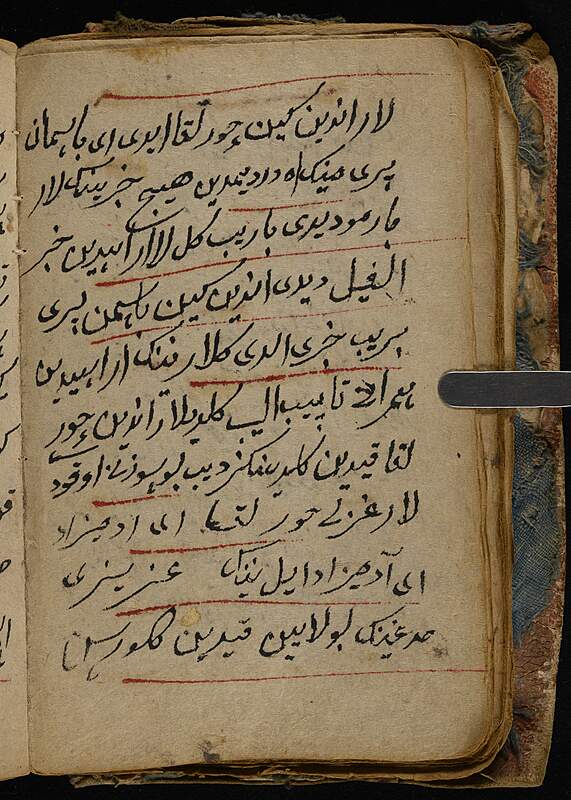 لار اندین کین حور لقا ایدی ای یاسمان
پری مینک اه درد یمدین هیچ خبرینک لار
بارمو دیدی باریب کل لار اراسیدین خبر
الغیل دیدی اندین کین یاسمن پری
باریب خبر الدی کلار ننک اراسیدین
تاپیب الیب کلدیلار اندین حور
لقا قیدین کلدینکز دیب بو سوزنی اوقود
لار غزل حور لقا ای ادمیزاد
ای آدمیزاد ایل ینک عزیزی
بولایین قیدین کلور سن